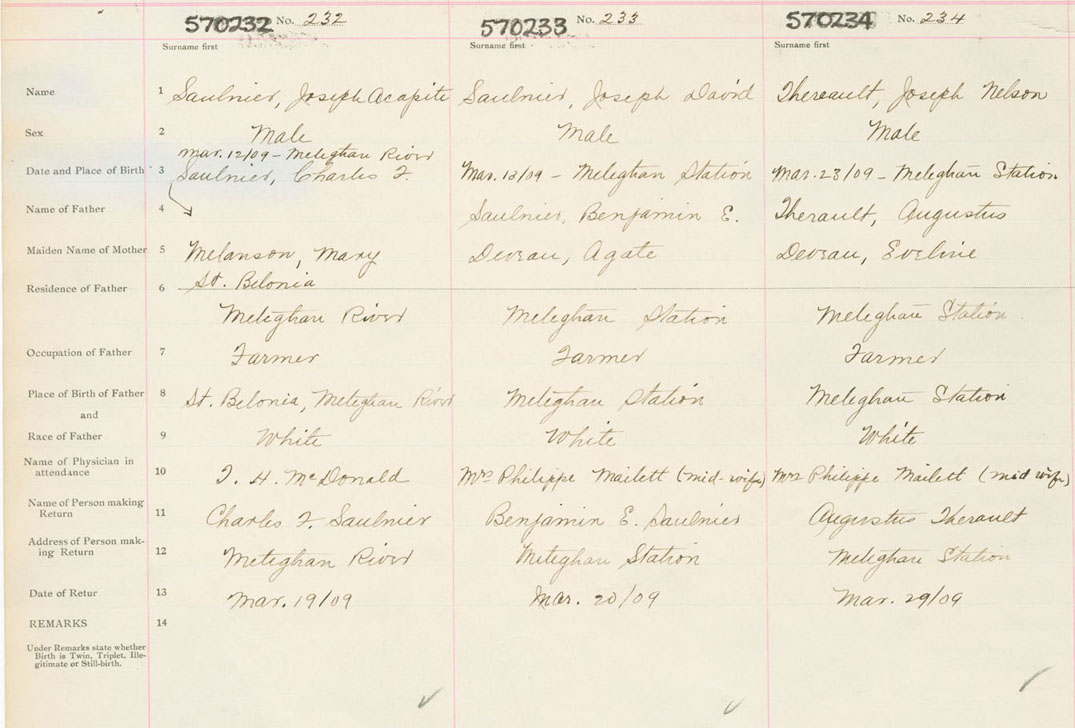 570232 No. 232 570233 No. 233 570234 No. 234
Surname first Surname first Surname first
Name 1 Saulnier, Joseph Acapite Saulnier, Joseph David Thereault, Joseph Nelson
Sex 2 Male Male Male
Mar. 12/09 - Meteghan River
Date and Place of Birth 3 Saulnier, Charles F. Mar. 13/09 - Meteghan Station Mar. 23/09 - Meteghan Station
Name of Father 4 Saulnier, Benjamin E. Therault, Augustus
Maiden Name of Mother 5 Melanson, Mary Deveau, Agate Deveau, Eveline
St. Belonia
Residence of Father 6
Meteghan River Meteghan Station Meteghan Station
Occupation of Father 7 Farmer Farmer Farmer
Place of Birth of Father 8 St. Belonia, Meteghan River Meteghan Station Meteghan Station
and
Race of Father 9 White White White
Name of Physician in
attendance 10 T. H. McDonald Mrs Philippe Mailett (mid-wife) Mrs Philippe Mailett (mid wife)
Name of Person making
Return 11 Charles F. Saulnier Benjamin E. Saulnier Augustus Therault
Address of Person mak-
ing Return 12 Meteghan River Meteghan Station Meteghan Station
Date of Retur 13 Mar. 19/09 Mar. 20/09 Mar. 29/09
REMARKS 14
Under Remarks state whether
Birth is Twin, Triplet, Ille-
gitimate or Still-birth.